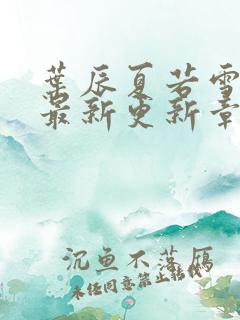 葉辰夏若雪
最新更新章
沉魚不落雁
未任同意禁止轉載